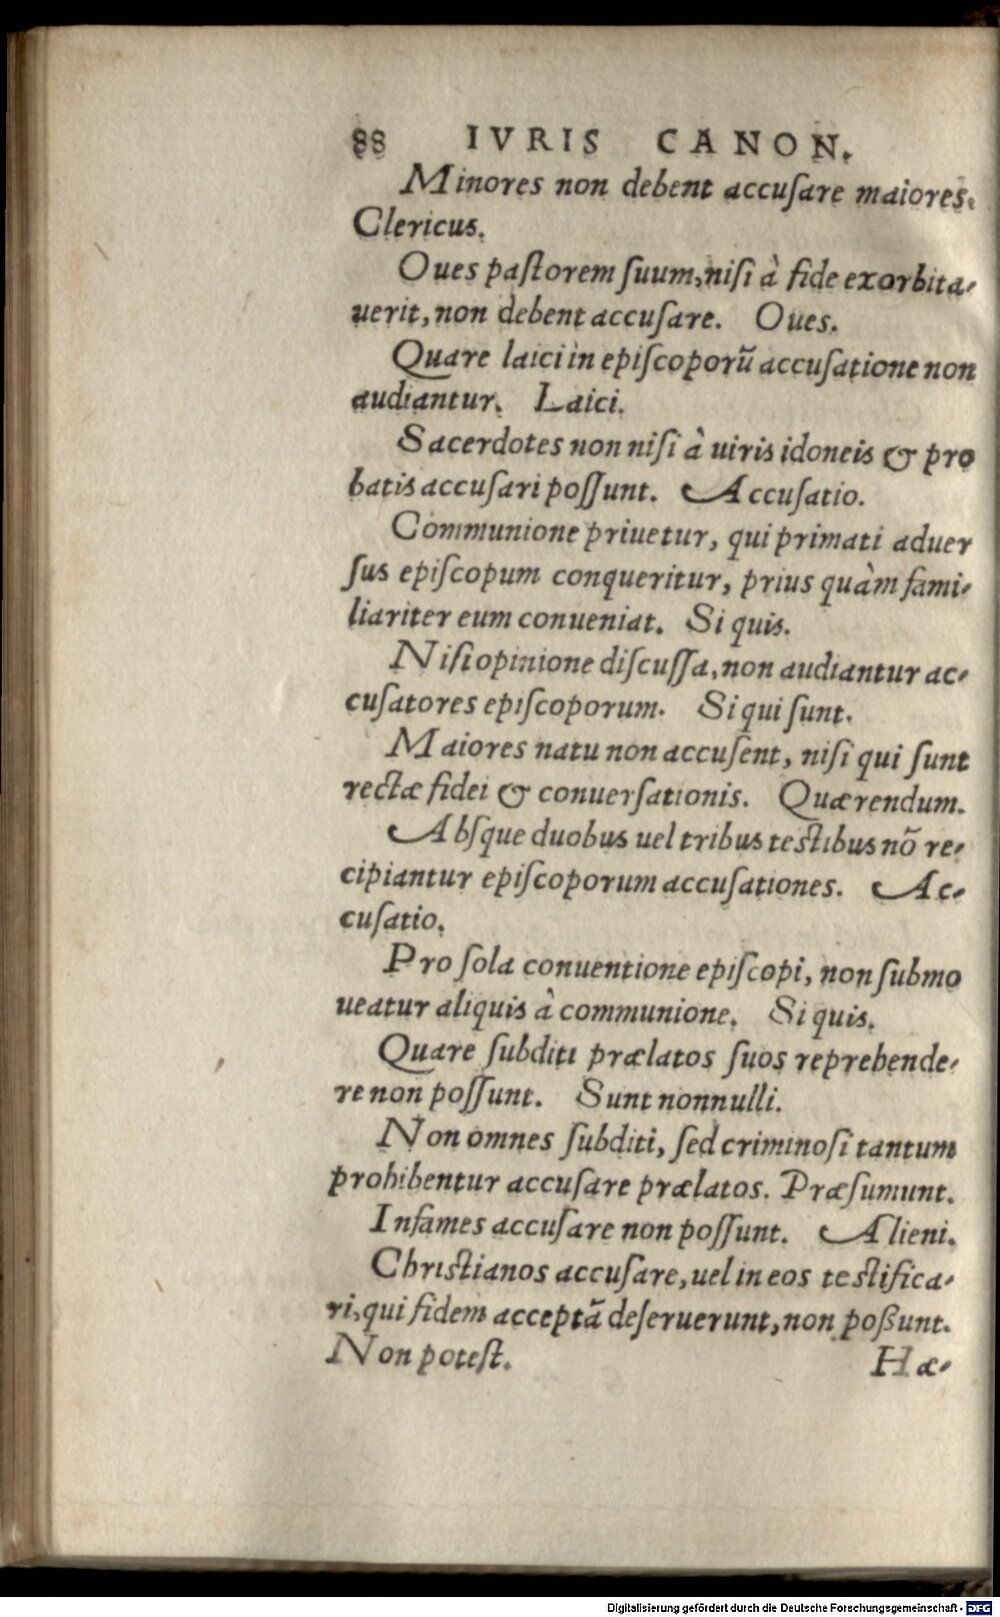 88 IVRIS CANON.
Minores non debent accuſare maiores.
Clericus.
Oues paſtorem ſuum, niſi à fide exorbita-
uerit, non debent accuſare. Oues.
Quare laici in epiſcoporũ accuſatione non
audiantur. Laici.
Sacerdotes non niſi à uiris idoneis & pro
batis accuſari poſſunt. Accuſatio.
Communione priuetur, qui primati aduer
ſus epiſcopum conqueritur, prius quàm fami-
liariter eum conueniat. Si quis.
Niſi opinione diſcuſſa, non audiantur ac-
cuſatores epiſcoporum. Si qui ſunt.
Maiores natu non accuſent, niſi qui ſunt
rectæ fidei & conuerſationis. Quærendum.
Abſque duobus uel tribus teſtibus nõ re-
cipiantur epiſcoporum accuſationes. Ac-
cuſatio.
Pro ſola conuentione epiſcopi, non ſubmo
ueatur aliquis à communione. Si quis.
Quare ſubditi prælatos ſuos reprehende-
re non poſſunt. Sunt nonnulli.
Non omnes ſubditi, ſed criminoſi tantum
prohibentur accuſare prælatos. Præſumunt.
Infames accuſare non poſſunt. Alieni.
Chriſtianos accuſare, uel in eos teſtifica-
ri, qui fidem acceptã deſeruerunt, non poßunt.
Non poteſt. Hæ-
Digitalisierung gefördert durch die Deutsche Forschungsgemeinschaft - DFG